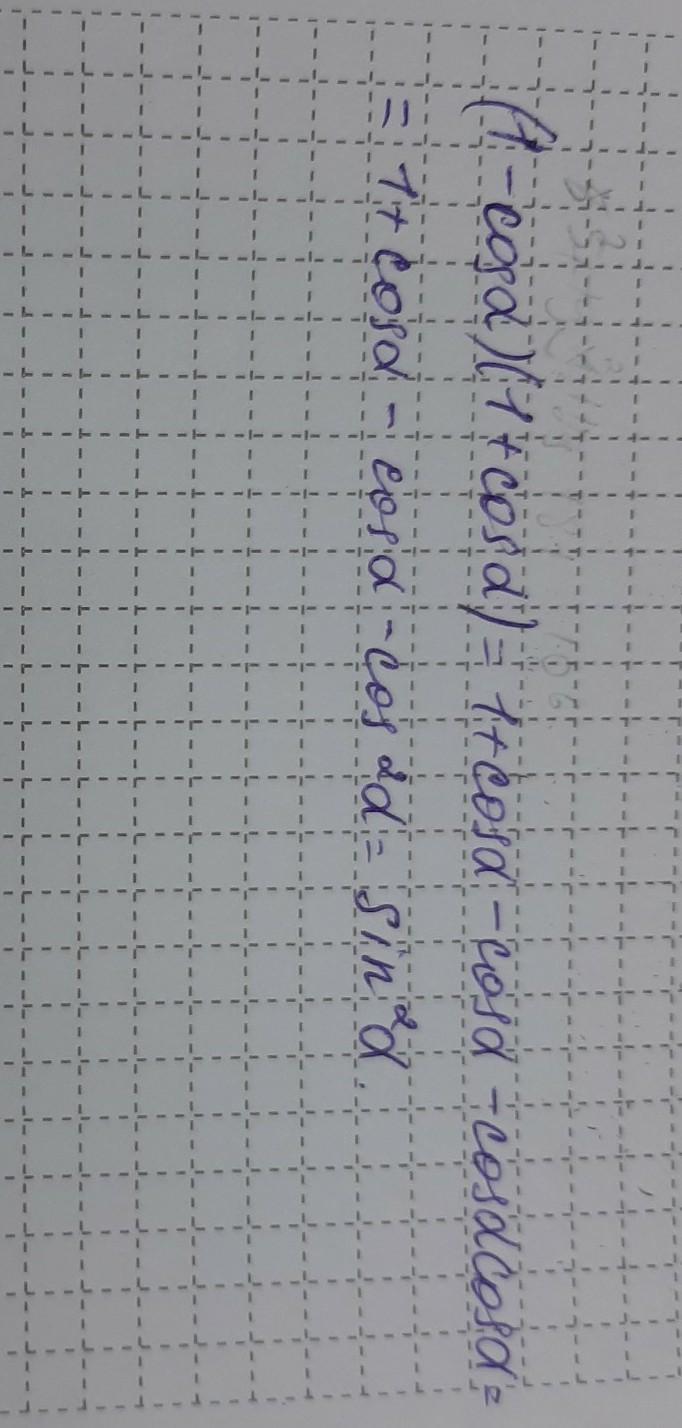 (1-cosα)(1+cosα)=1+cosα-cosα-cosαcosα=
=1+cosα-cosα-cos²α=sin²α.